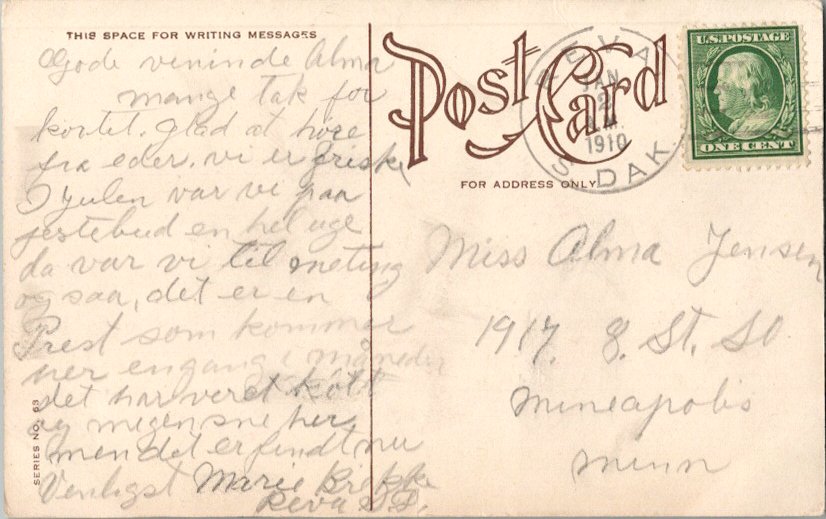 THIS SPACE FOR WRITING MESSAGES
Gode veninde Alma
mange tak for
kortet. glad at høre
fra eder. vi er friske
I julen var vi paa
gestebud en hel uge
da var vi til meting
og saa, det er en
Prest som kommer
her engang i måneden
det har veret kolt
og megen sne her,
men det er findt nu
Venligst Marie
Reva S D.
SERIES NO. 63
Post Card
FOR ADDRESS ONLY.
REVA
JAN
2
1910
S. DAK.
U.S. POSTAGE
ONE CENT
Miss Alma Jensen
1917. 8. St. So
Mineapolis
Minn